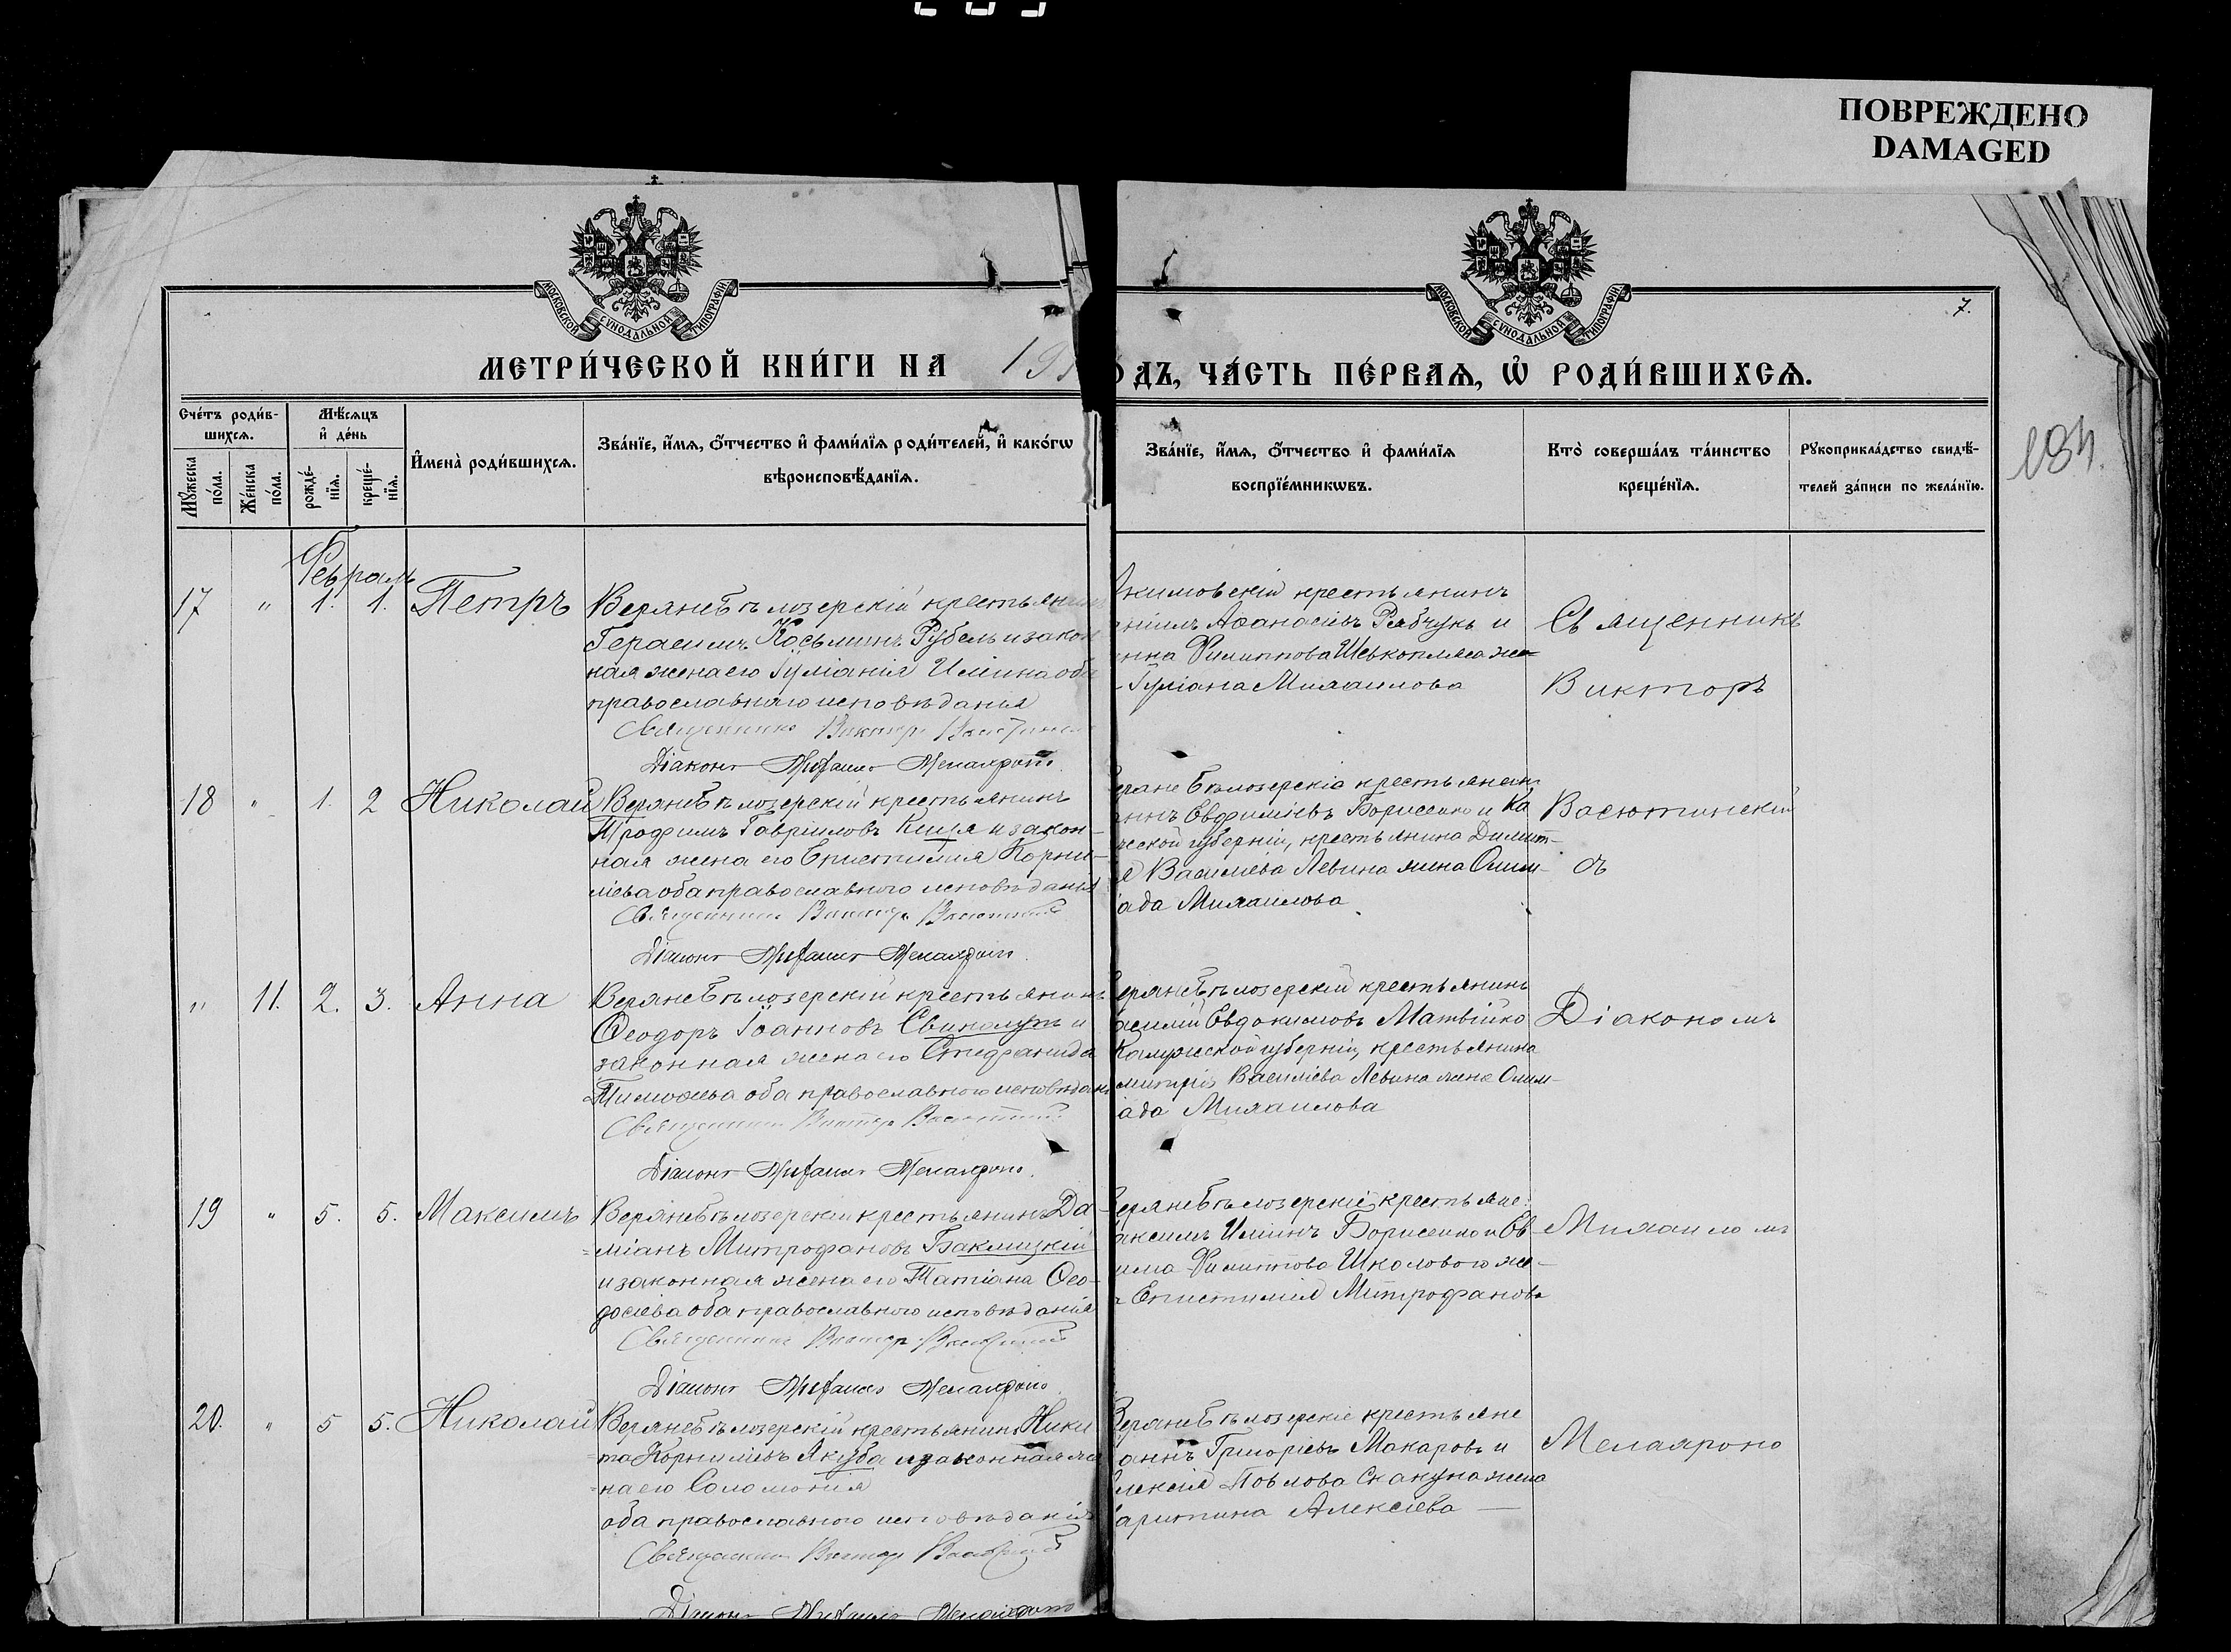 ПОВРЕЖДЕНО
DAMAGED
МОСКОВСКОЙ СѴНОДАЛЬНОЙ ТИПОГРАФІИ
МОСКОВСКОЙ СѴНОДАЛЬНОЙ ТИПОГРАФІИ
7.
МЕТРИ́ЧЕСКОЙ КНИ́ГИ НА 19
О́ДЪ, ЧА́СТЬ ПЕ́РВАѦ, Ѡ҆ РОДИ́ВШИХСѦ.
184.
Сче́тъ роди́в-
шихсѧ.
Мѣ́сѧцъ
и҆ де́нь
Мꙋ́жеска по́ла.
Же́нска по́ла.
рожде́-
нїѧ.
креще́-
нїѧ.
И҆мена̀ роди́вшихсѧ.
Зва́нїе, и҆́мѧ, ѻ҆́тчество и҆ фами́лїѧ роди́телей, и҆ како́гѡ
вѣроисповѣ́данїѧ.
Зва́нїе, и҆́мѧ, ѻ҆́тчество и҆ фами́лїѧ
воспрїе́мникѡвъ.
Кто̀ соверша́лъ та́инство
креще́нїѧ.
Рꙋкоприкла́дство свидѣ́-
телей за́писи по жела́нїю.
Февраль
17 " 1. 1. Петръ
Верхнебѣлозерскій крестьянинъ
Герасимъ Косьминъ Рубель и закон
ная жена его Іуліанія Илiина оба
православнаго исповѣданія
Священникъ Викторъ
Діаконъ Михаилъ Мелахроно
Акимовскій крестьянинъ
Аѳанасіевъ Рябчукъ и
Филиппова Шевкопляса же-
Іуліана Михаилова
Священникъ
Викторъ
18 " 1. 2 Николай
Верхнебѣлозерскій крестьянинъ
Трофимъ Гавріиловъ Кица и закон-
ная жена его Епистимія Корни-
ліева оба православного исповѣданія
Священникъ Викторъ
Діаконъ Михаилъ Мелахроно
Бѣлозерскіе крестьянин
Евфиміевъ Борисенко и Ка
ской губерніи, крестьянина Димит-
Василіева Левина жена Олим-
ада Михаилова
Васютинскій
съ
" 11. 2. 3. Анна
Верхнебѣлозерскій крестьянинъ
Ѳеодоръ Іоанновъ Свинолупъ и
законная жена его Стефанида
Тимоѳеева оба православного исповѣдан
Священникъ Викторъ
Діаконъ Михаилъ Мелахроно
ерхнебѣлозерскій крестьянинъ
асилій Евдокимовъ Матвійко
Калужской губерніи, крестьянина
митрія Василіева Левина жена Олим-
ада Михаилова
Діакономъ
19 " 5. 5. Максимъ
Верхнебѣлозерскій крестьянинъ Да-
міанъ Митрофановъ Баклицкій
и законная жена его Татіана Ѳео-
досіева оба православного исповѣданія
Священникъ Викторъ
Діаконъ Михаилъ Мелахроно
ерхнебѣлозерскіе крестьяне:
аксимъ Илiинъ Борисенко и Ев-
Филиппова Школового же-
Епистимія Митрофанова
Михаиломъ
20. " 5 5. Николай
Верхнебѣлозерскій крестьянинъ Ники
та Корниліевъ Якуба и законная же
на его Соломонія
оба православного исповѣданія
Священникъ Викторъ
Діаконъ Михаилъ Мелахроно
Верхнебѣлозерскіе крестьяне
аннъ Григоріевъ Макаровъ и
лексія Павлова Скакуна жена
аритина Алексіева
Мелахроно